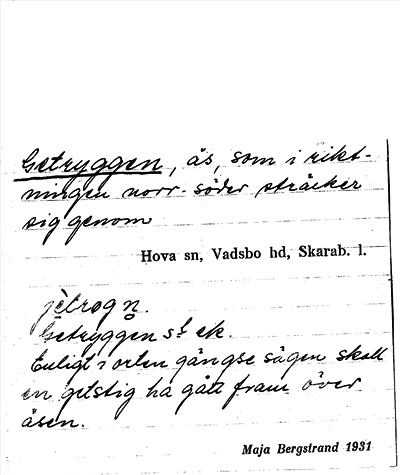 Getryggen, ås, som i rikt-
ningen norr-söder sträcker
sig genom
Hova sn, Vadsbo hd, Skarab. l.
jètrøgn̥.
Getryggen st ek.
Enligt i orten gängse sägen skall
en getstig ha gått fram över
åsen.
Maja Bergstrand 1931